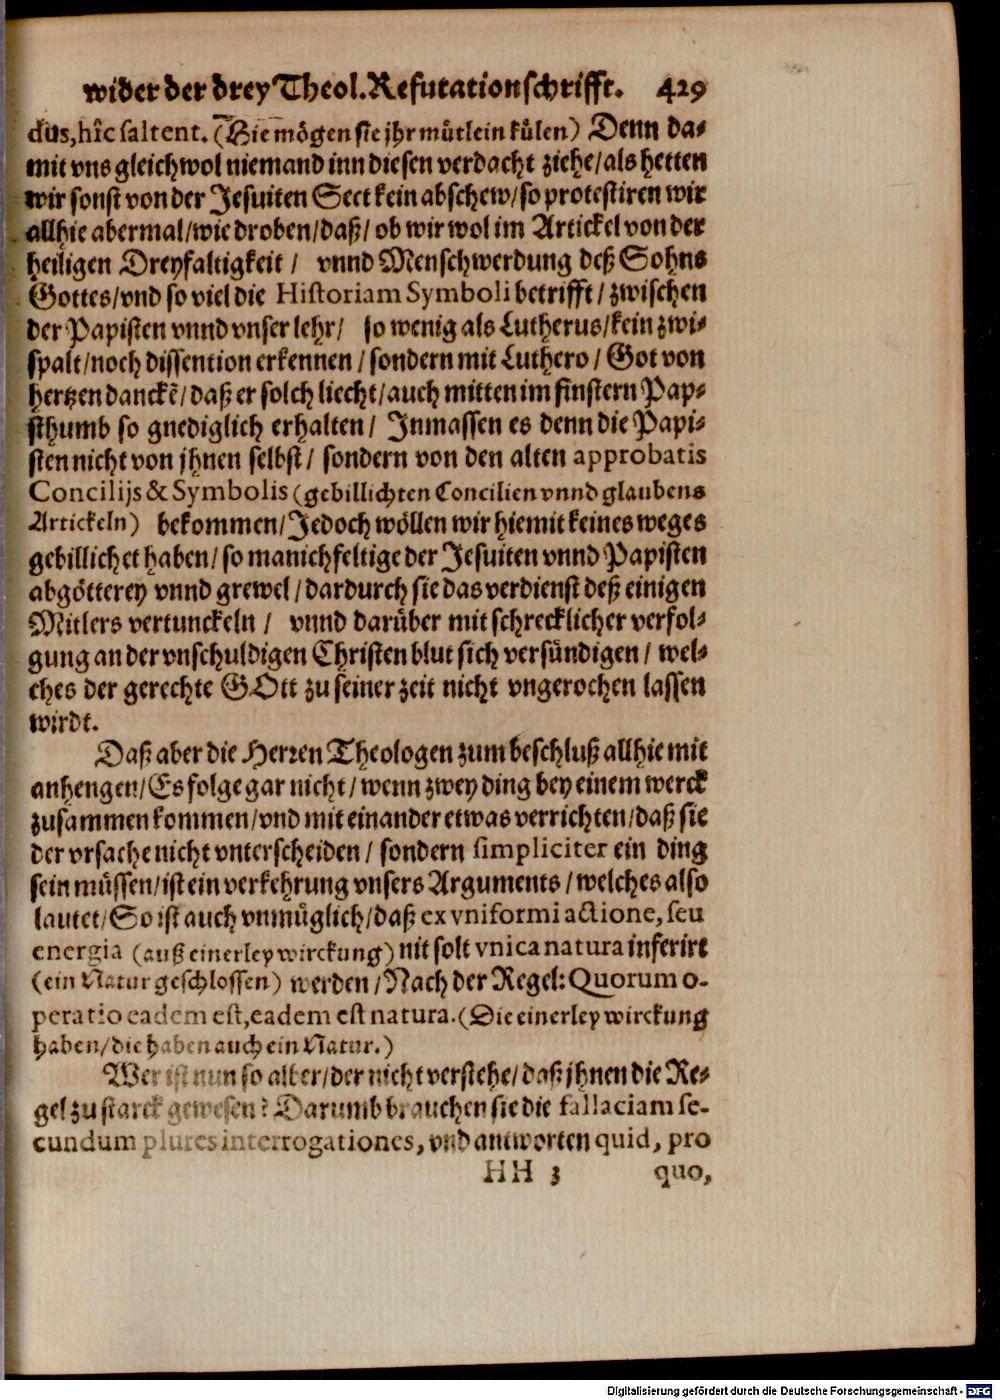 wider der drey Theol. Refutationschrifft. 429
dus, hîc saltent. (Hie mögen sie jhr mütlein külen) Denn da-
mit vns gleichwol niemand inn diesen verdacht ziehe/als hetten
wir sonst von der Jesuiten Sect kein abschew/so protestiren wir
allhie abermal/wie droben/daß/ ob wir wol im Artickel von der
heiligen Dreyfaltigkeit / vnnd Menschwerdung deß Sohns
Gottes/vnd so viel die Historiam Symboli betrifft/ zwischen
der Papisten vnnd vnser lehr/ so wenig als Lutherus/kein zwi-
spalt/noch dissention erkennen / sondern mit Luthero / Got von
hertzen danckẽ/daß er solch liecht/auch mitten im finstern Pap-
sthumb so gnediglich erhalten / Inmassen es denn die Papi-
sten nicht von jhnen selbst/ sondern von den alten approbatis
Concilijs & Symbolis (gebillichten Concilien vnnd glaubens
Artickeln) bekommen/Jedoch wöllen wir hiemit keines weges
gebillichet haben/ so manichfeltige der Jesuiten vnnd Papisten
abgötterey vnnd grewel / dardurch sie das verdienst deß einigen
Mitlers vertunckeln / vnnd darüber mit schrecklicher verfol-
gung an der vnschuldigen Christen blut sich versündigen / wel-
ches der gerechte GOtt zu seiner zeit nicht vngerochen lassen
wirdt.
Daß aber die Herren Theologen zum beschluß allhie mit
anhengen/Es folge gar nicht/wenn zwey ding bey einem werck
zusammen kommen/vnd mit einander etwas verrichten/daß sie
der vrsache nicht vnterscheiden / sondern simpliciter ein ding
sein müssen/ist ein verkehrung vnsers Arguments / welches also
lautet/So ist auch vnmüglich/daß ex vniformi actione, seu
energia (auß einerley wirckung) nit solt vnica natura inferirt
(ein Natur geschlossen) werden / Nach der Regel: Quorum o-
peratio eadem est, eadem est natura. (Die einerley wirckung
haben/die haben auch ein Natur.)
Wer ist nun so alber/der nicht verstehe/daß jhnen die Re-
gel zu starck gewesen? Darumb brauchen sie die fallaciam se-
cundum plures interrogationes, vnd antworten quid, pro
HH 3 quo,
Digitalisierung gefördert durch die Deutsche Forschungsgemeinschaft - DFG